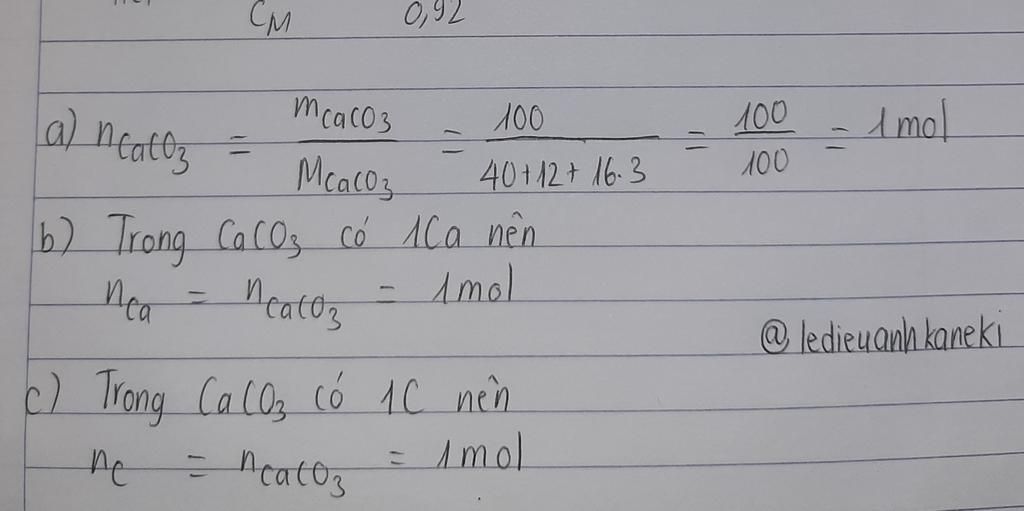 C_M 0,92
a) n_CaCO₃ = m_CaCO₃ / M_CaCO₃ = 100 / 40+12+16.3 = 100 / 100 = 1 mol
b) Trong CaCO₃ có 1Ca nên
n_Ca = n_CaCO₃ = 1 mol
@ ledieuanhkaneki
c) Trong CaCO₃ có 1C nên
n_C = n_CaCO₃ = 1 mol